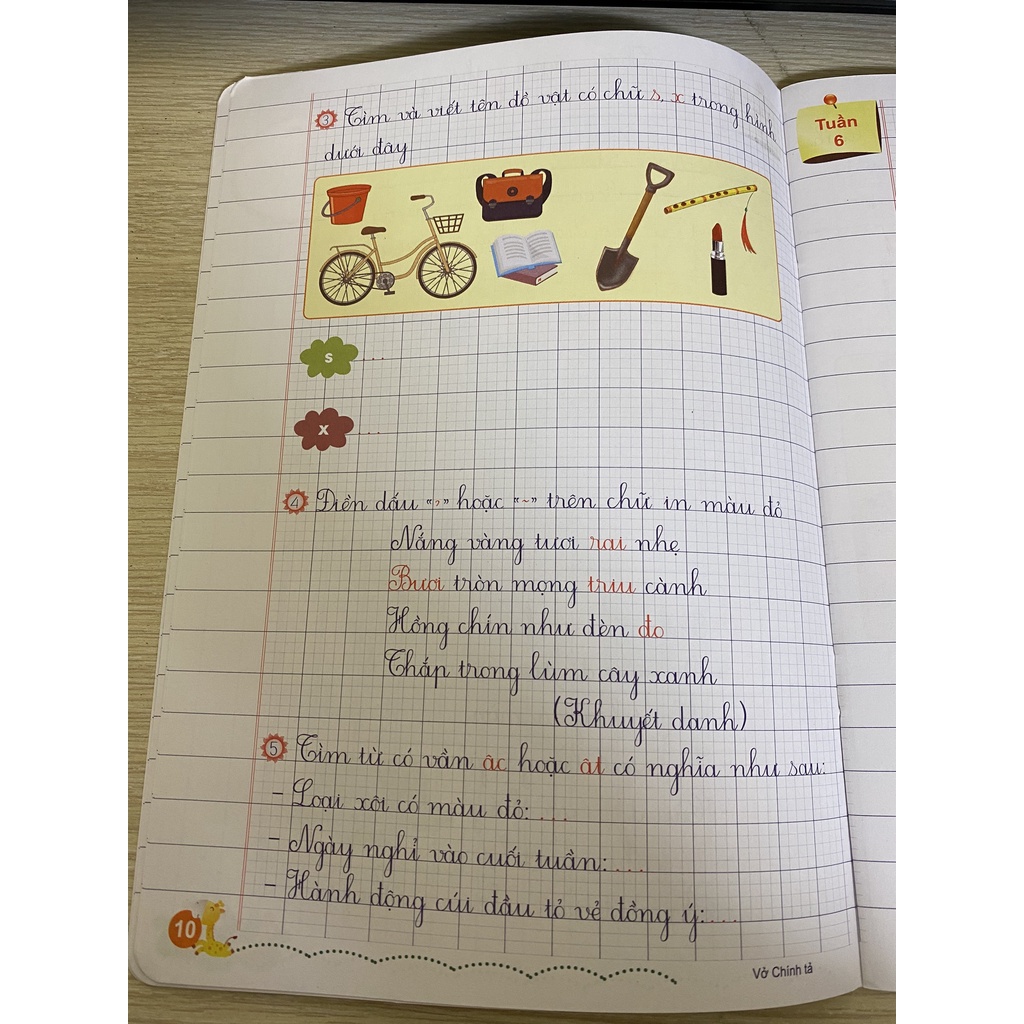 3 Tìm và viết tên đồ vật có chữ s, x trong hình
dưới đây
s ...
x ...
4 Điền dấu "ˀ" hoặc "~" trên chữ in màu đỏ
Nắng vàng tươi rai nhẹ
Bươi tròn mọng trĩu cành
Hồng chín như đèn đo
Thắp trong lùm cây xanh
(Khuyết danh)
5 Tìm từ có vần âc hoặc ât có nghĩa như sau:
- Loại xôi có màu đỏ: ...
- Ngày nghỉ vào cuối tuần: ....
- Hành động cúi đầu tỏ vẻ đồng ý: ....
10
Vở Chính tả
Tuần
6